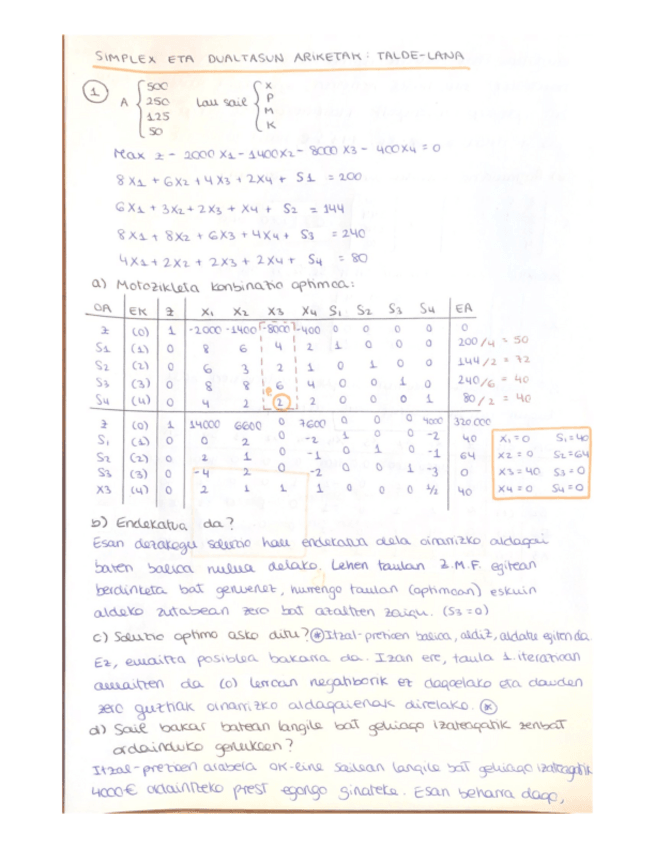 SIMPLEX ETA DUALTASUN ARIKETAK: TALDE-LANA
① A { 500 250 125 50 Lau sail { X P M K
Max z - 2000 X1 - 1400X2 - 8000 X3 - 400X4 = 0
8X1 + 6X2 + 4X3 + 2X4 + S1 = 200
6X1 + 3X2 + 2X3 + X4 + S2 = 144
8X1 + 8X2 + 6X3 + 4X4 + S3 = 240
4X1 + 2X2 + 2X3 + 2X4 + S4 = 80
a) Motozikleta konbinazio optimoa:
OA EK z X1 X2 X3 X4 S1 S2 S3 S4 EA
z (0) 1 -2000 -1400 -8000 -400 0 0 0 0 0
S1 (1) 0 8 6 4 2 1 0 0 0 200/4 = 50
S2 (2) 0 6 3 2 1 0 1 0 0 144/2 = 72
S3 (3) 0 8 8 6 4 0 0 1 0 240/6 = 40
S4 (4) 0 4 2 2 2 0 0 0 1 80/2 = 40
z (0) 1 14000 6600 0 7600 0 0 0 4000 320000
S1 (1) 0 0 2 0 -2 1 0 0 -2 40 X1=0 S1=40
S2 (2) 0 2 1 0 -1 0 1 0 -1 64 X2=0 S2=64
S3 (3) 0 -4 2 0 -2 0 0 1 -3 0 X3=40 S3=0
X3 (4) 0 2 1 1 1 0 0 0 1/2 40 X4=0 S4=0
b) Endekatua da?
Esan dezakegu soluzio hau endekatua dela oinarrizko aldagai
baten balioa nulua delako. Lehen taulan Z.M.F. egitean
berdinketa bat genuenez, hurrengo taulan (optimoan) eskuin
aldeko zutabean zero bat azaltzen zaigu. (S3=0)
c) Soluzio optimo asko ditu? ⊛ Itzal-prezioen balioa, aldiz, aldatu egiten da.
Ez, emaitza posiblea bakarra da. Izan ere, taula 1. iterazioan
amaitzen da (0) lerroan negatiborik ez dagoelako eta dauden
zero guztiak oinarrizko aldagaienak direlako. ⊛
d) Sail bakar batean langile bat gehiago izateagatik zenbat
ordainduko genukeen?
Itzal-prezioen arabera OK-eine sailean langile bat gehiago izateagatik
4000€ ordaintzeko prest egongo ginateke. Esan beharra dago,